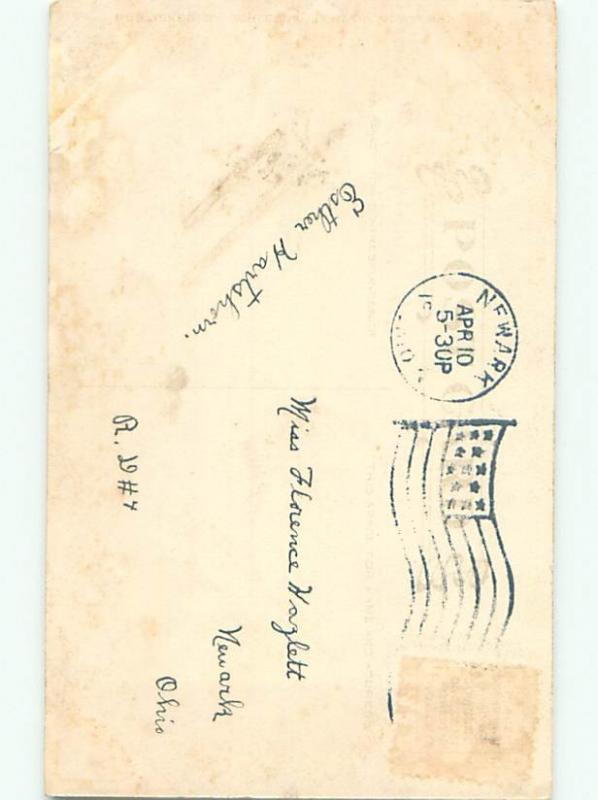 NEWARK
APR 10
5-30P
Esther Hartshorn.
Miss Florence Hazlett
Newark
Ohio
R. D #4